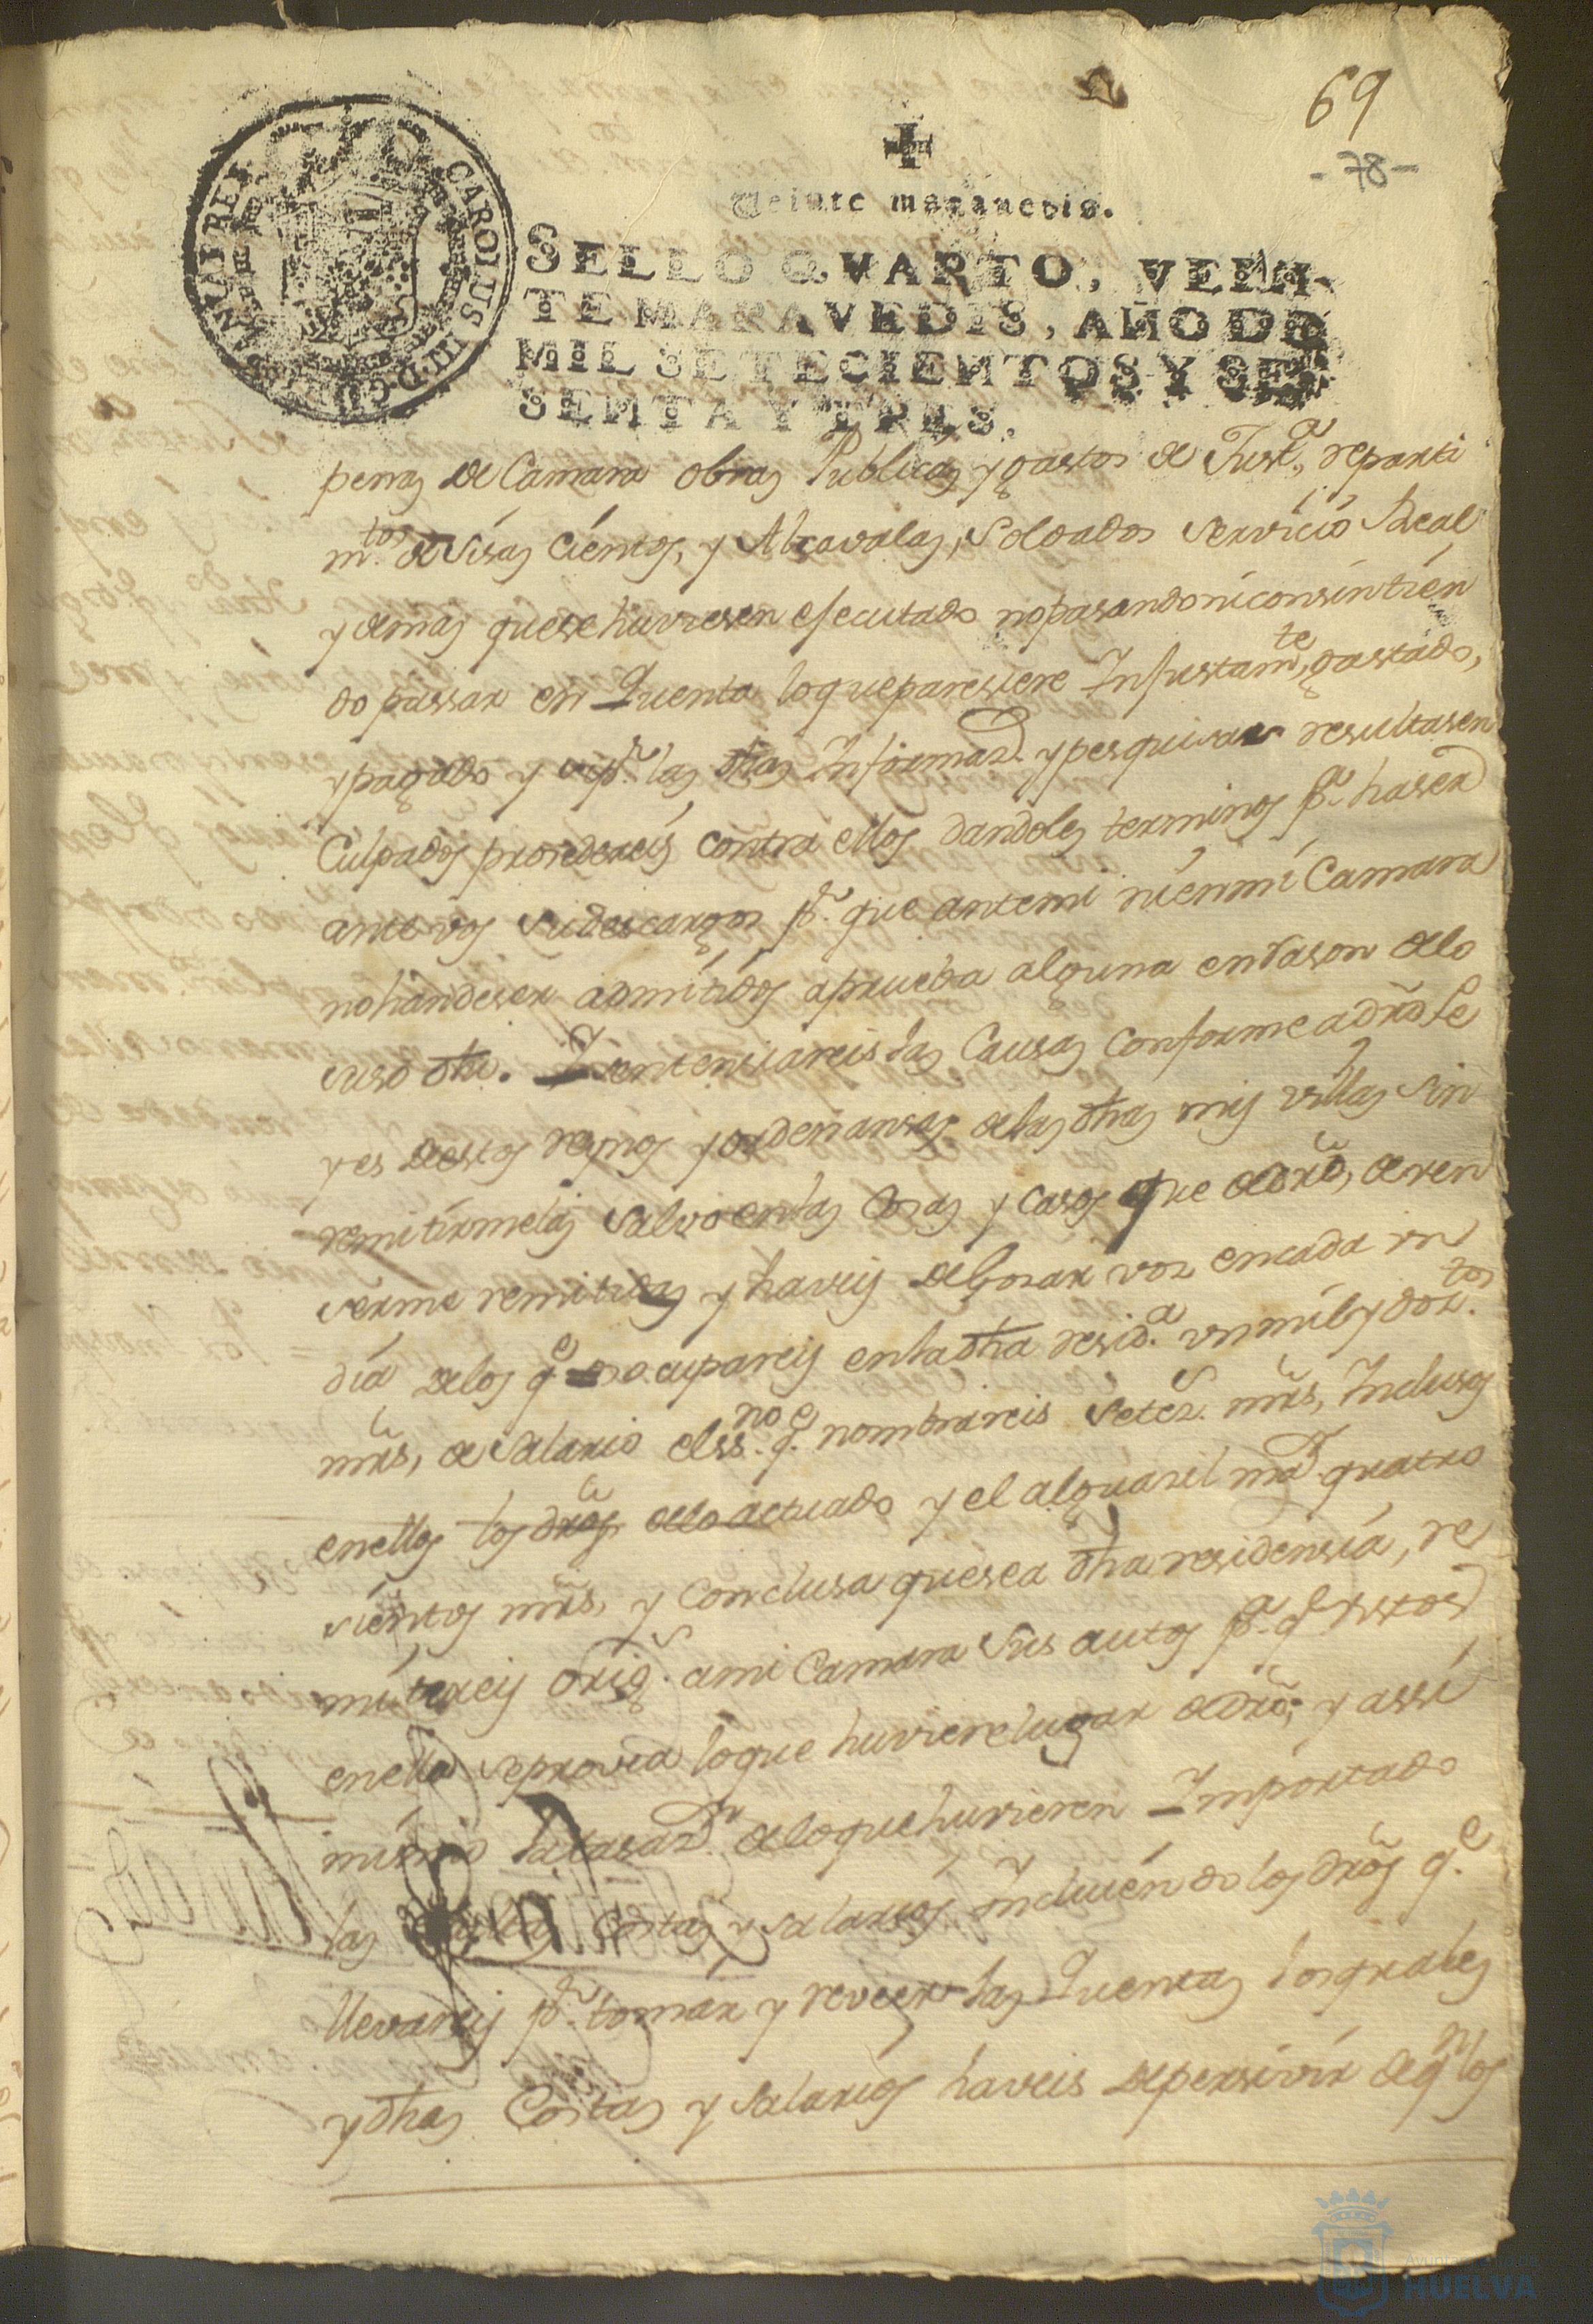 69
- 78 -
CAROLUS III D G HISPANIAR REX
Veinte maravedis.
SELLO QVARTO, VEIN-
TE MARAVEDIS, AÑO DE
MIL SETECIENTOS Y SE
SENTA Y TRES.
penas de Camara obras Publicas y gastos de Just.ª, reparti
m.tos de Sisas Cientos, y Alcavalas, Soldados Servicio Real
y demas que se huviesen ejecutado no pasando ni consintien
do passar en Quenta lo que paresiere Injustam.te, gastado,
y pagado y si p.r las dhas Informaz.s y pesquisas resultasen
Culpados prosedereis contra ellos dandoles terminos p.ª haser
ante vos sus descargos p.r que ante mi ni en mi Camara
no han de ser admitidos a prueba alguna en rason de lo
suso dho. I sentensiareis las Causas Conforme a dro Le
yes de estos reynos y ordenansas de las dhas mis villas sin
remitirmelas salvo en las cosas y casos que de dro, deven
serme remitidas y haveis de gosar vos en cada un
dia de los q.e os ocupareis en la dha resid.ª un mil y dos.tos
mrs, de salario el ss.no q.e nombrareis setes.s mrs, Inclusos
en ellos los dros de lo actuado y el alguasil ma.r quatro
sientos mrs, y Conclusa que sea dha residensia, re
mitireis orig.s a mi Camara sus autos p.ª q.e vistos
en ella se provea lo que huviere lugar de dro; y assi
mismo la tasaz.n de lo que huvieren Importado
las Costas y salarios Incluiendo los dros q.e
llevareis p.r tomar y reveer las Quentas los quales
y dhas Costas y salarios haveis de persivir de q.n los
HUELVA